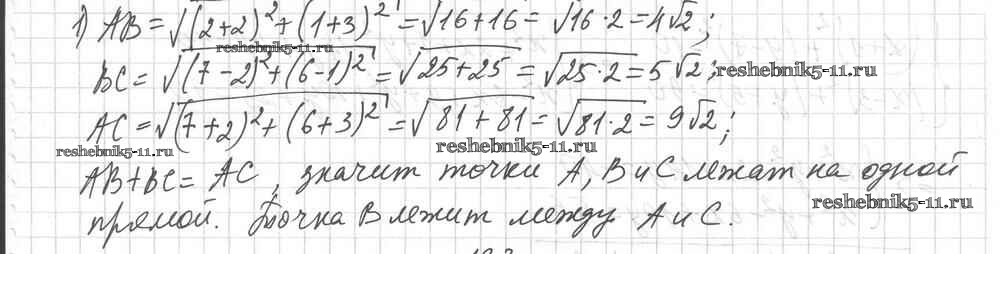 1) AB = √((2+2)² + (1+3)²) = √(16+16) = √(16·2) = 4√2;
reshebnik5-11.ru
BC = √((7-2)² + (6-1)²) = √(25+25) = √(25·2) = 5√2; reshebnik5-11.ru
AC = √((7+2)² + (6+3)²) = √(81+81) = √(81·2) = 9√2;
reshebnik5-11.ru reshebnik5-11.ru
AB+BC = AC, значит точки A, B и C лежат на одной
reshebnik5-11.ru
прямой. Точка B лежит между A и C.